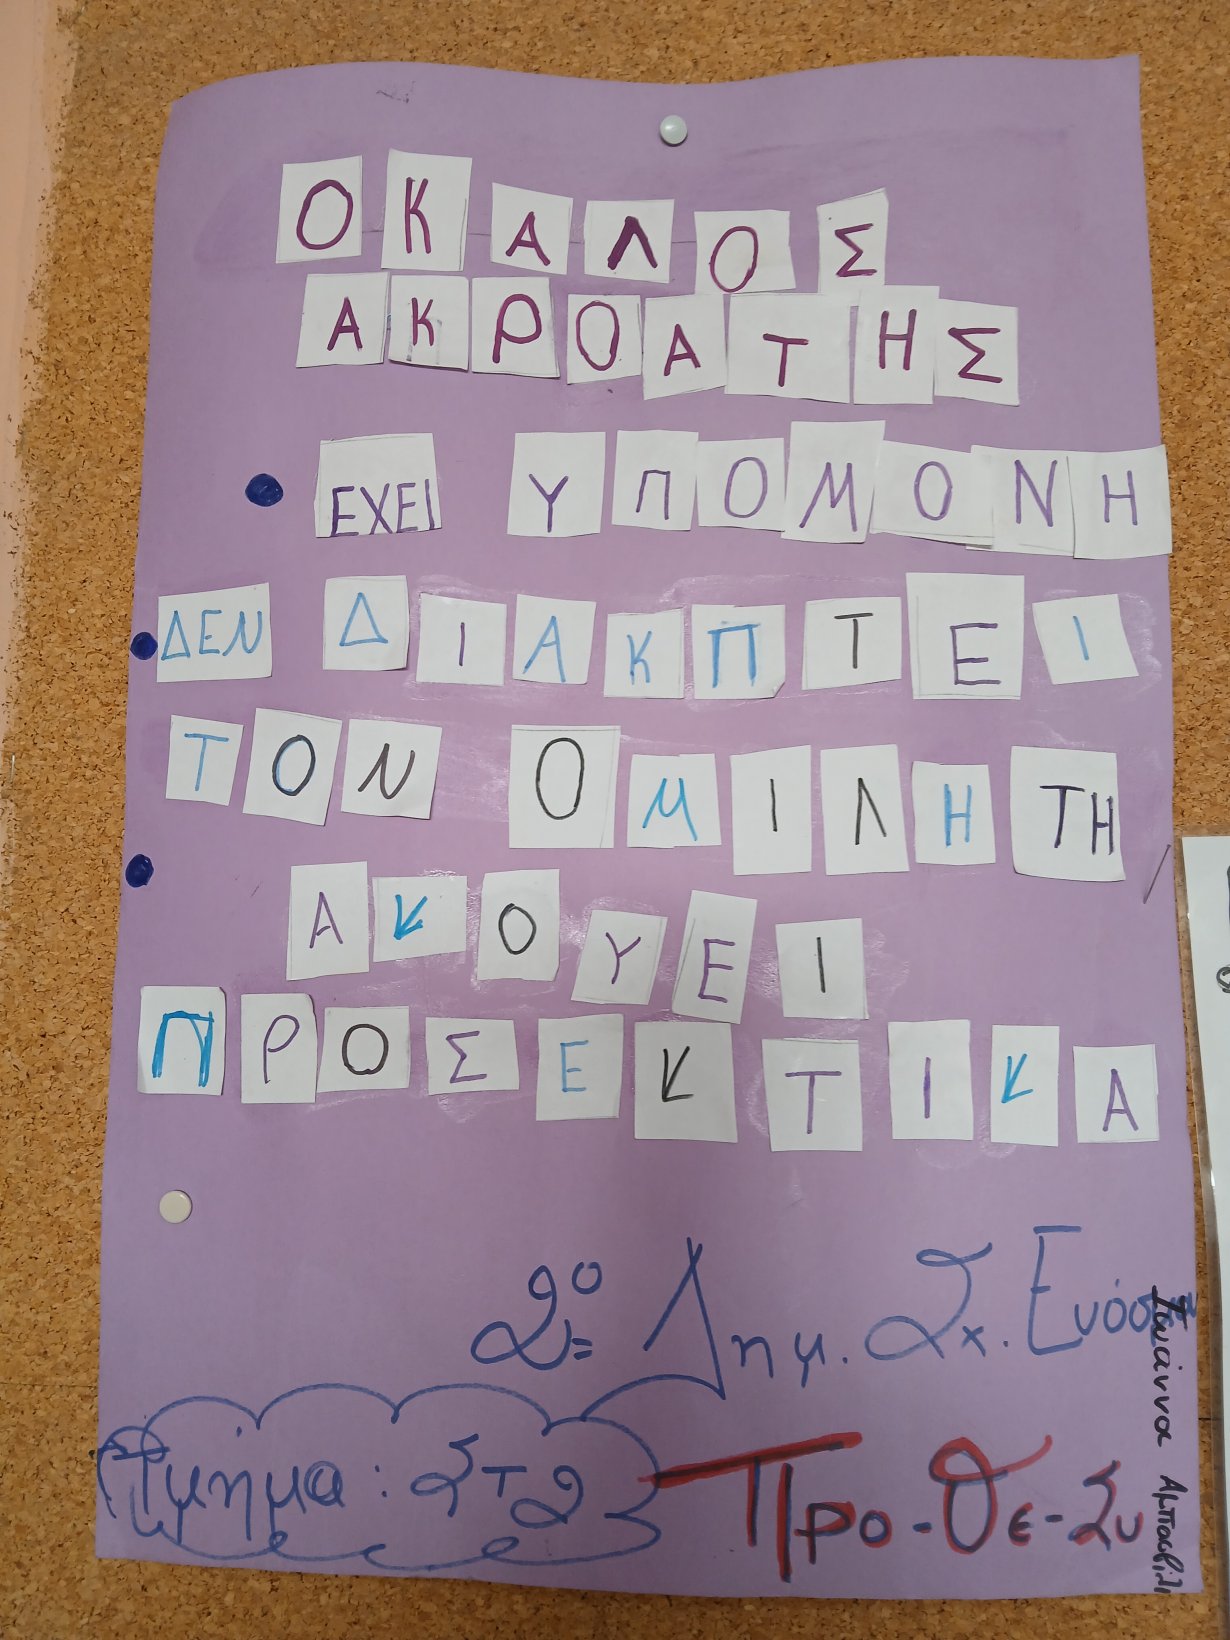 Ο ΚΑΛΟΣ
ΑΚΡΟΑΤΗΣ
ΕΧΕΙ ΥΠΟΜΟΝΗ
ΔΕΝ ΔΙΑΚΠΤΕΙ
ΤΟΝ ΟΜΙΛΗΤΗ
ΑΚΟΥΕΙ
ΠΡΟΣΕΚΤΙΚΑ
2ο Δημ. Σχ. Ευόσμ
Τμήμα: Στ2
Προ-Θε-Συ
Ιωάννα Αμπασβιλι